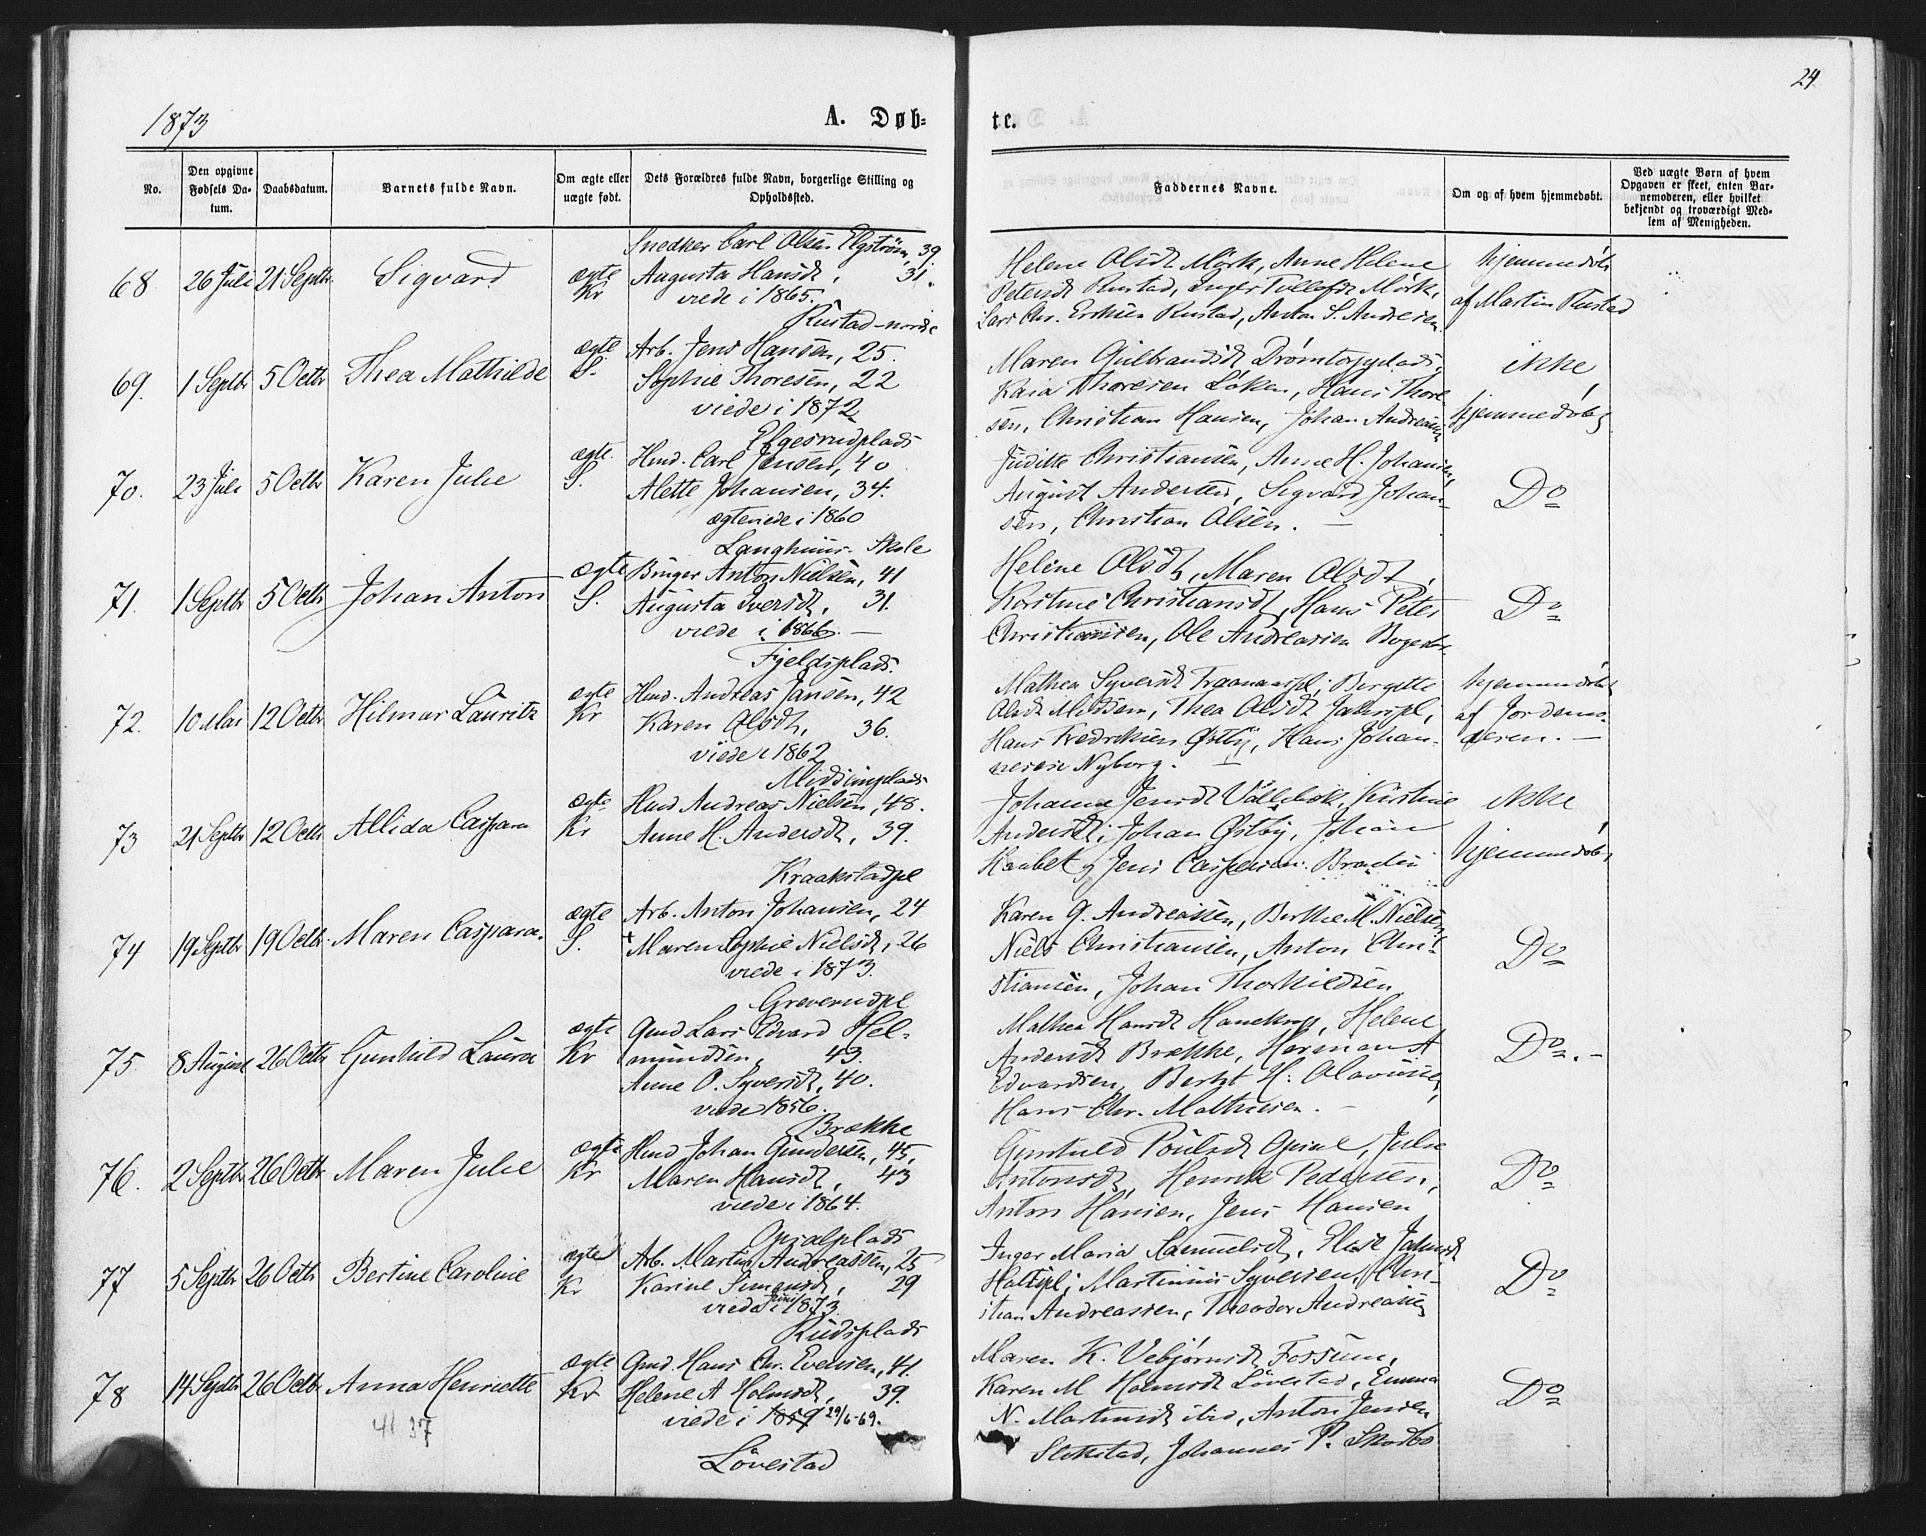 24
1873
A. Døb=
te.
No.
Den opgivne Fødsels Da-tum.
Daabsdatum.
Barnets fulde Navn.
Om ægte eller uægte født.
Dets Forældres fulde Navn, borgerlige Stilling og Opholdssted.
Faddernes Navne.
Om og af hvem hjemmedøbt.
Ved uægte Børn af hvem Opgaven er skeet, enten Bar-nemoderen, eller hvilket bekjendt og troværdigt Med-lem af Menigheden.
68. 26 Juli 21 Septbr. Sigvard ægte Kr
Snedker Carl Olsen Elgström, 39
Augusta Hansdt, 31.
viede i 1865.
Rustad nordre
Helene Olsdt Mörk, Anne Helene
Petersdt Rustad, Inger Tollefsdt Mörk,
Lars Chr. Rustad, Anton S. Andresen
hjemmedöbt
af Martin Rustad
69. 1 Septbr 5 Octbr Thea Mathilde ægte S.
Arb. Jens Hansen, 25.
Sophie Thoresen, 22
viede i 1872
Elgesrudplads
Maren Gulbrandsdt Drömtorpplads.
Kaia Thoresen Löken, Hans Thore
sen, Christian Hansen, Johan Andreasen
ikke
hjemmedöbt
70. 23 Juli 5 Octbr Karen Julie ægte. S.
Hmd. Carl Jensen, 40
Alette Johansen, 34.
ægteviede i 1860
Langhuus-Skole
Juditte Christiansen, Anne H. Johansen,
August Andersen, Sigvard Johan-
sen, Christian Olsen. —
Do
71. 1 Septbr 5 Octbr Johan Anton ægte S.
Bruger Anton Nielsen, 41
Augusta Iversdt, 31.
viede i 1866. —
Fjeldsplads.
Helene Olsdt, Maren Olsdt,
Kristine Christiansdt, Hans Peter
Christiansen, Ole Andreassen
Do
72. 10 Mai 12 Octbr Hilmar Lauritz ægte Kr
Hmd. Andreas Jansen, 42
Karen Olsdt, 36.
viede i 1862
Mathea Syversdt Birgitte
Olsdt Thea Olsdt
Hans Fredriksen Østby, Hans Johan-
nesen Nyborg. —
hjemmedöbt
af Jordemo-
deren. —
73 21 Septbr 12 Octbr Allida Caspara ægte Kr
Hmd Andreas Nielsen, 48.
Anne H. Andersdt, 39.
Kraakstadpl
Johanne Jensdt Kirstine
Andersdt, Johan Østby, Johan
Kaabel og Jens Caspersen
ikke
hjemmedöbt
74 19 Septbr 19 Octbr. Maren Caspara. ægte S.
Arb. Anton Johansen, 24
+ Maren Sophie Nielsdt, 26
viede i 1873.
Greverudpl
Karen G. Andreassen, Berthe M. Nielsen,
Niels Christiansen, Anton Chri-
stiansen, Johan Thorkildsen
Do
75. 8 August 26 Octbr Gunhild Laura ægte Kr
Gmd Lars Edvard Hel-
mundsen, 43.
Anne O. Syversdt, 40.
viede 1856.
Brække
Mathea Hansdt Helene
Andersdt Brække, Herman A
Edvardsen,
Hans Chr. Mathiesen. —
Do. —
76. 2 Septbr 26 Octbr Maren Julie ægte Kr
Hmd Johan Gundersen, 45,
Maren Hansdt, 43
viede i 1864.
Opsalplads
Gunhild Poulsdt Opsal, Julie
Antonsdt, Henrik Pedersen,
Anton Hansen, Jens Hansen
Do
77 5 Septbr 26 Octbr Bertine Caroline ægte Kr
Arb. Martin Andreassen, 25
Karine Simensdt, 29
viede i Juni 1873.
Rudsplads
Inger Maria Samuelsdt, Elise
Martinius Syversen, Chri-
stian Andreassen, Theodor Andreasen
Do
78 14 Septbr 26 Octbr Anna Henriette ægte Kr
Gmd. Hans Chr. Evensen, 41.
Helene A Holmsdt, 39.
viede i 1859 29/6-69.
Lövestad
Maren K. Vebjörnsdt Fossum,
Karen M Holmsdt Lövestad, Emma
N. Martinsdt ibid, Anton Jensen
Johannes P. Skodbo
Do
41 37